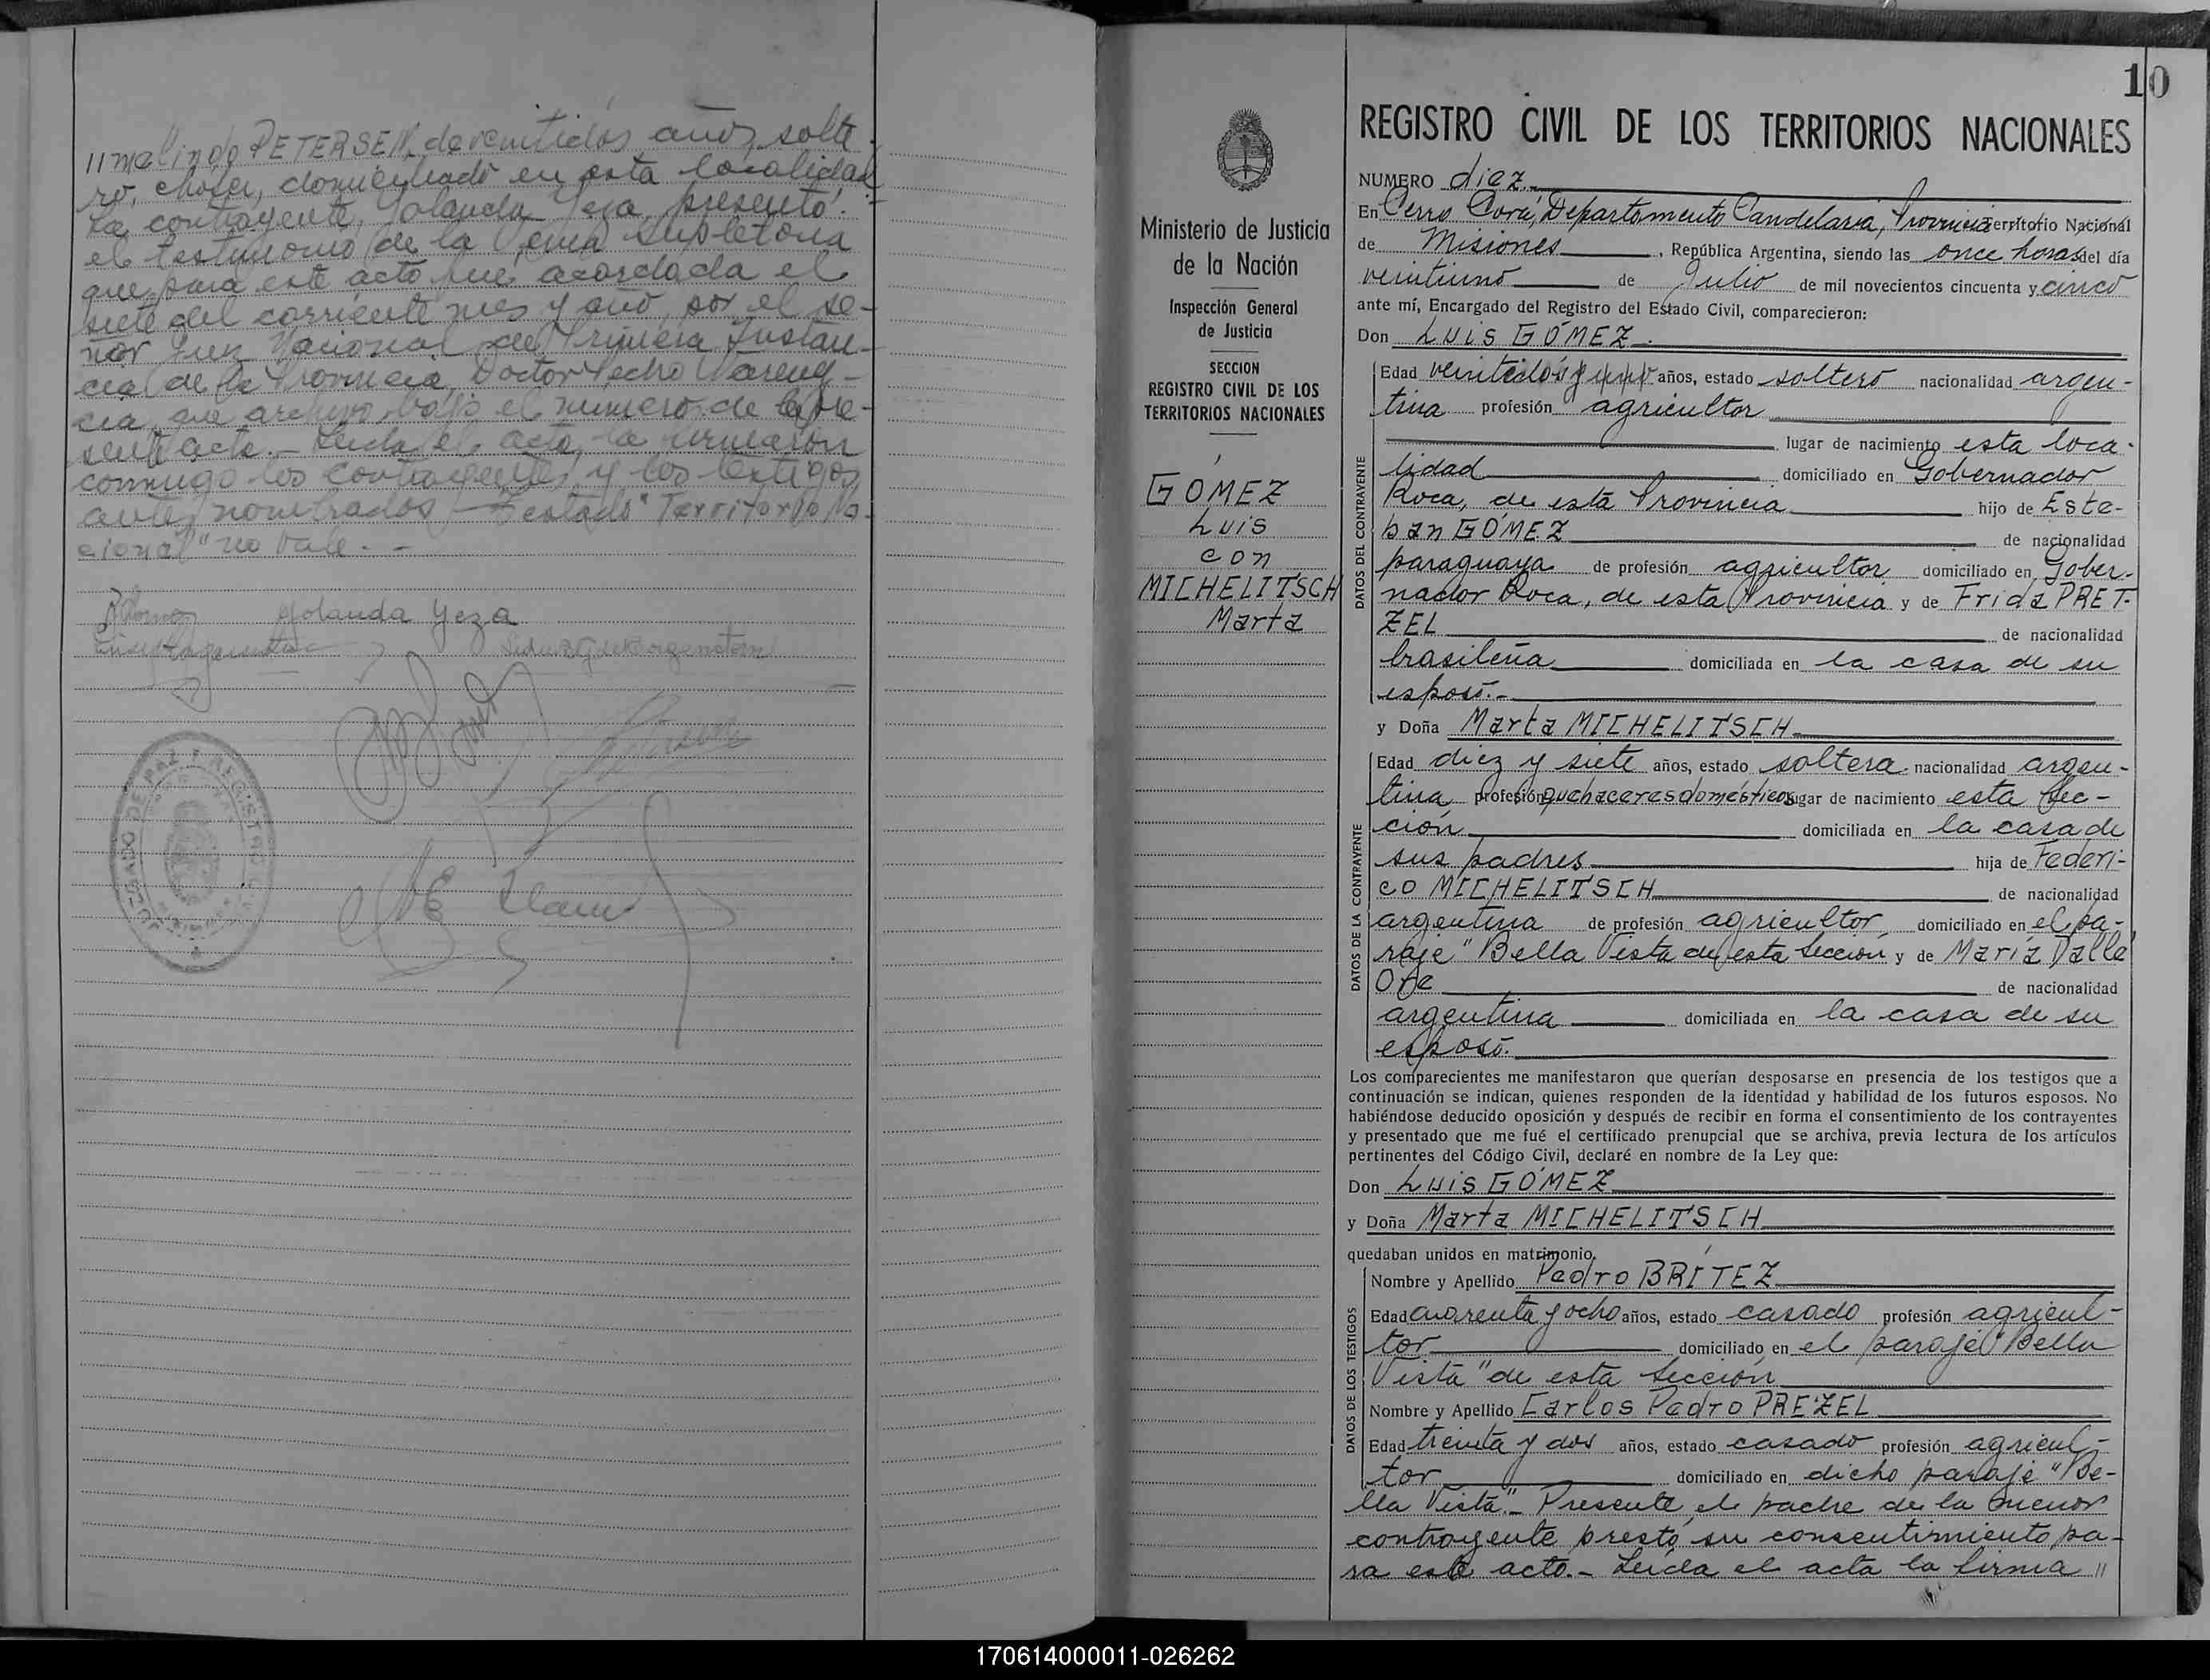 11melindo PETERSEN, de veintidós años, solte-
ro, chofer, domiciliado en esta localidad.-
La contrayente, Yolanda Yeza, presentó
el testimonio de la venia supletoria
que para este acto fue acordada el
siete del corriente mes y año, por el se-
ñor Juez Nacional de Primera Instan-
cia de la Provincia, Doctor Pedro
cia, que archivo bajo el número de la pre-
sente acta.- Leída el acta, la firmaron
conmigo los contrayentes y los testigos
antes nombrados Testado "Territorio Na-
cional" no vale.-
Yolanda Yeza
JUZGADO DE PAZ REGISTRO CIVIL
10
REGISTRO CIVIL DE LOS TERRITORIOS NACIONALES
NUMERO diez.-
En Cerro Corá, Departamento Candelaria, Provincia Territorio Nacional
de Misiones, República Argentina, siendo las once horas del día
veintiuno de Julio de mil novecientos cincuenta y cinco
ante mí, Encargado del Registro del Estado Civil, comparecieron:
Don Luis GÓMEZ.
Edad veintidós años, estado soltero nacionalidad argen-
tina profesión agricultor
lugar de nacimiento esta loca-
lidad domiciliado en Gobernador
Roca, de esta Provincia hijo de Este-
ban GÓMEZ de nacionalidad
paraguaya de profesión agricultor domiciliado en Gober-
nador Roca, de esta Provincia y de Frida PRET-
ZEL de nacionalidad
brasileña domiciliada en la casa de su
esposo.-
y Doña Marta MICHELITSCH
Edad diez y siete años, estado soltera nacionalidad argen-
tina profesión quehaceres domésticos lugar de nacimiento esta Sec-
ción domiciliada en la casa de
sus padres hija de Federi-
co MICHELITSCH de nacionalidad
argentina de profesión agricultor domiciliado en el pa-
raje "Bella Vista de esta Sección y de María Dalla
Ore de nacionalidad
argentina domiciliada en la casa de su
esposo.
Los comparecientes me manifestaron que querían desposarse en presencia de los testigos que a
continuación se indican, quienes responden de la identidad y habilidad de los futuros esposos. No
habiéndose deducido oposición y después de recibir en forma el consentimiento de los contrayentes
y presentado que me fué el certificado prenupcial que se archiva, previa lectura de los artículos
pertinentes del Código Civil, declaré en nombre de la Ley que:
Don Luis GÓMEZ
y Doña Marta MICHELITSCH
quedaban unidos en matrimonio.
Nombre y Apellido Pedro BRÍTEZ
Edad cuarenta y ocho años, estado casado profesión agricul-
tor domiciliado en el paraje "Bella
Vista" de esta Sección
Nombre y Apellido Carlos Pedro PREZEL
Edad treinta y dos años, estado casado profesión agricul-
tor domiciliado en dicho paraje "Be-
lla Vista".- Presente el padre de la menor
contrayente prestó su consentimiento pa-
ra este acto.- Leída el acta la firma 11
DATOS DEL CONTRAYENTE
DATOS DE LA CONTRAYENTE
DATOS DE LOS TESTIGOS
Ministerio de Justicia
de la Nación
Inspección General
de Justicia
SECCION
REGISTRO CIVIL DE LOS
TERRITORIOS NACIONALES
GOMEZ
Luis
con
MICHELITSCH
Marta
170614000011-026262